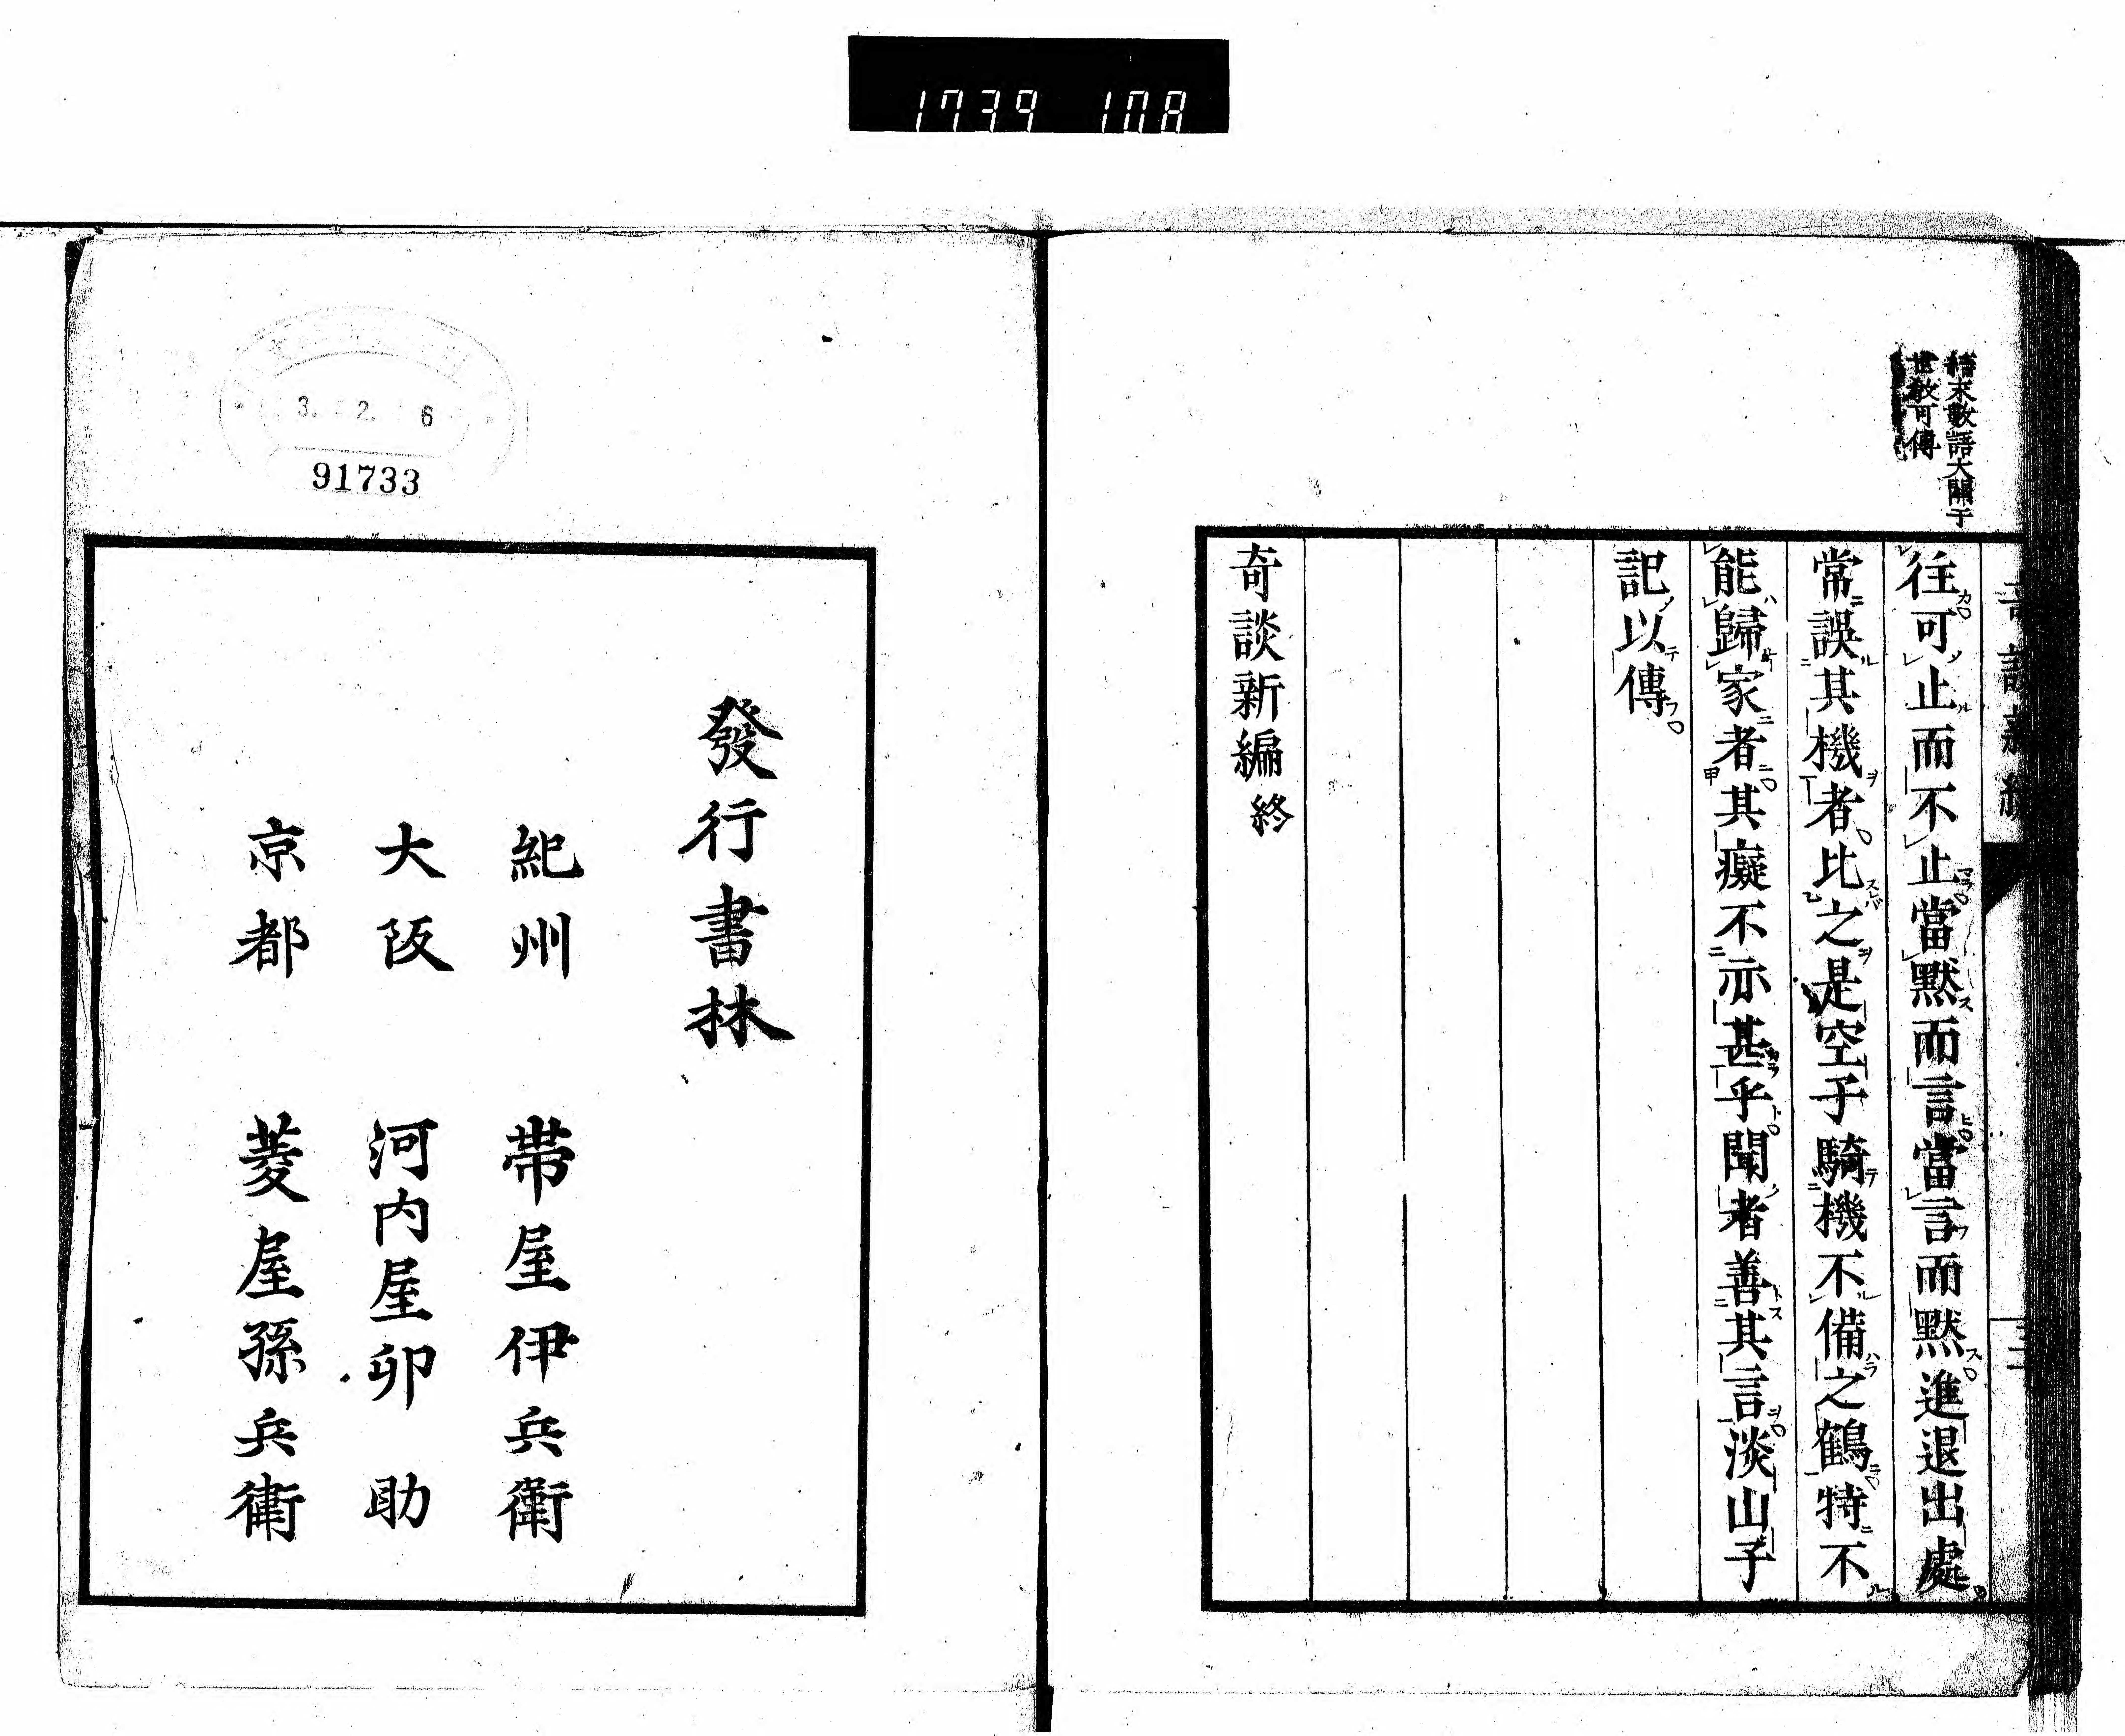 1739 108
結末數語大關于
世教可傳
往可止而不止當默而言當言而默進退出處
常誤其機者比之是空手騎機不備之鶴特不
能歸家者其癡不亦甚乎聞者善其言淡山子
記以傳
奇談新編終
3. 2. 6
91733
發行書林
紀州 帯屋伊兵衛
大阪 河内屋卯助
京都 菱屋孫兵衛